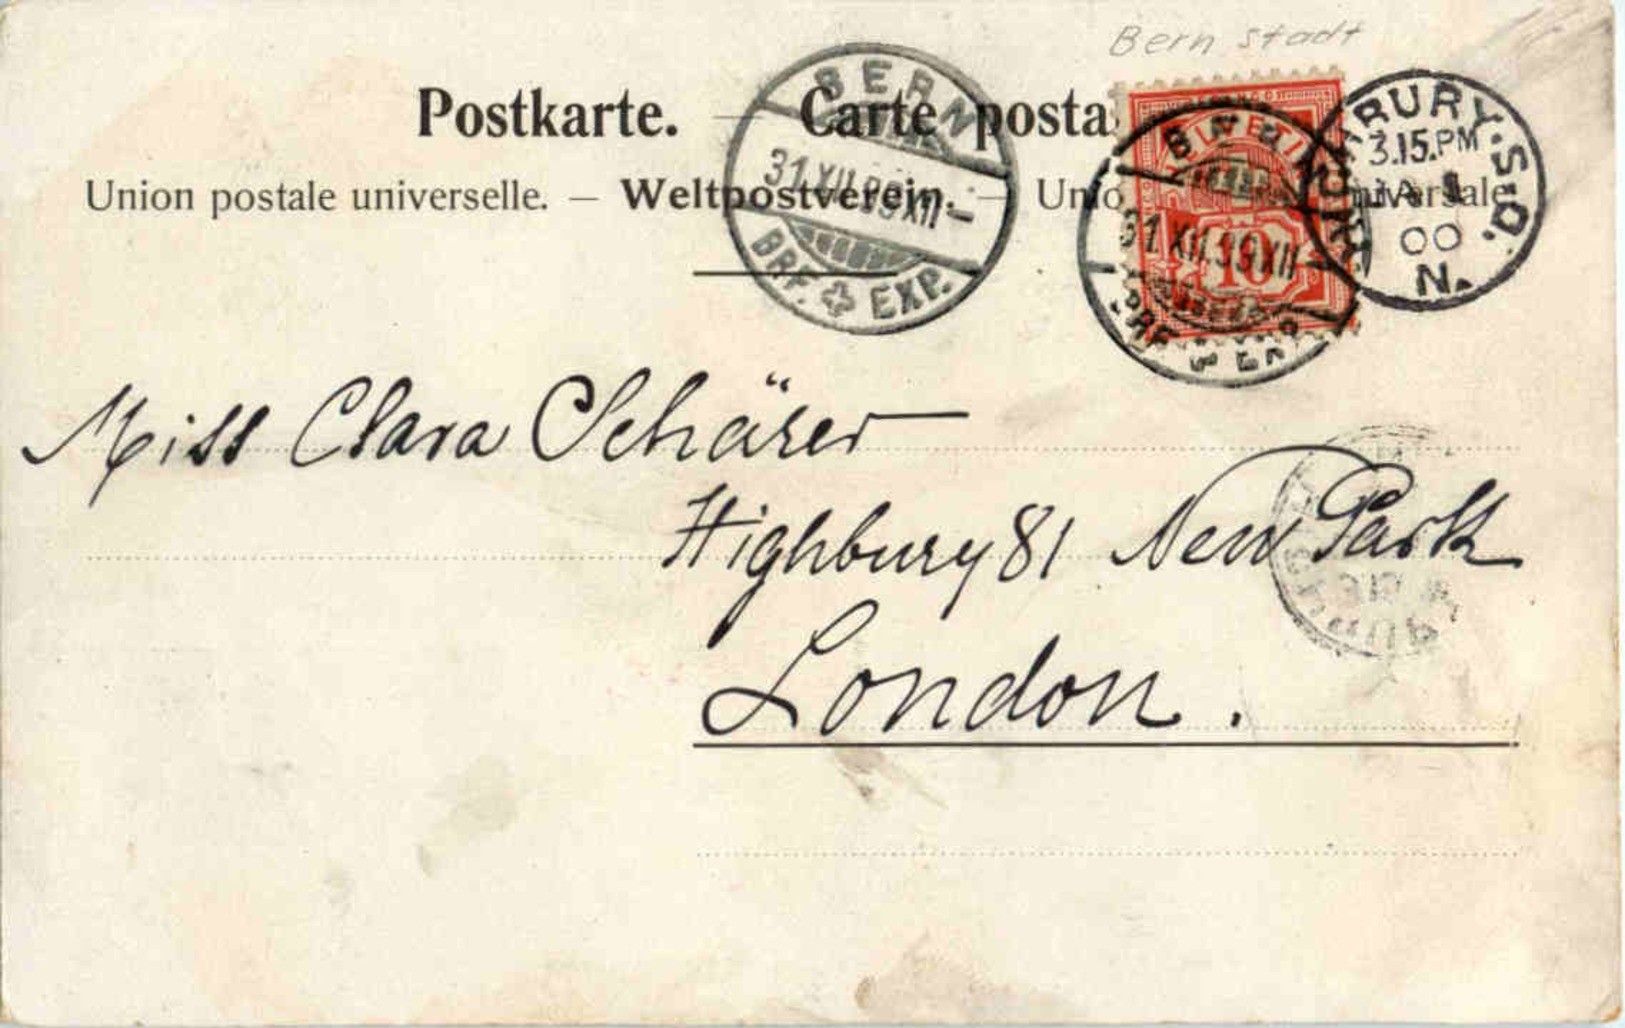 Bern Stadt
Postkarte. — Carte posta
Union postale universelle. — Weltpostverein. — Unio universale
BERN
31.XII.99.XII–
BRF. EXP.
BERN
31.XII.99.XII
BRF. EXP.
10
HIGHBURY.S.O.
3.15.PM
JA 1
00
N.
Miss Clara Schärer
Highbury 81 New Park
London.